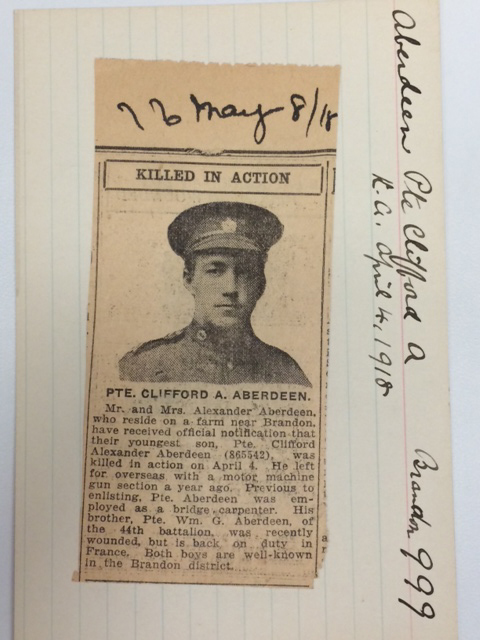 Aberdeen Pte Clifford A
K. A. April 4, 1918
Brandon 999
May 8/18
KILLED IN ACTION
PTE. CLIFFORD A. ABERDEEN.
Mr. and Mrs. Alexander Aberdeen,
who reside on a farm near Brandon,
have received official notification that
their youngest son, Pte. Clifford
Alexander Aberdeen (865542), was
killed in action on April 4. He left
for overseas with a motor machine
gun section a year ago. Previous to
enlisting, Pte. Aberdeen was em-
ployed as a bridge carpenter. His
brother, Pte. Wm. G. Aberdeen, of
the 44th battalion, was recently
wounded, but is back on duty in
France. Both boys are well-known
in the Brandon district.